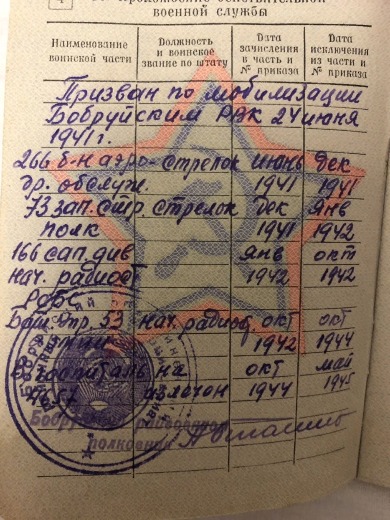 4 Прохождение действительной
военной службы
Наименование воинской части
Должность и воинское звание по штату
Дата зачисления в часть и № приказа
Дата исключения из части и № приказа
Призван по мобилизации
Бобруйским РВК 24 июня
1941 г.
266 б-н аэро- стрелок июнь дек
др. обслуж. 1941 1941
73 зап. стр. стрелок дек янв
полк 1941 1942
166 сап. див янв окт
нач. радиост 1942 1942
Бат. 53 нач. радиос. окт окт
армии 1942 1944
В госпиталь на окт май
излечен 1944 1945
Бобруйский
полковник